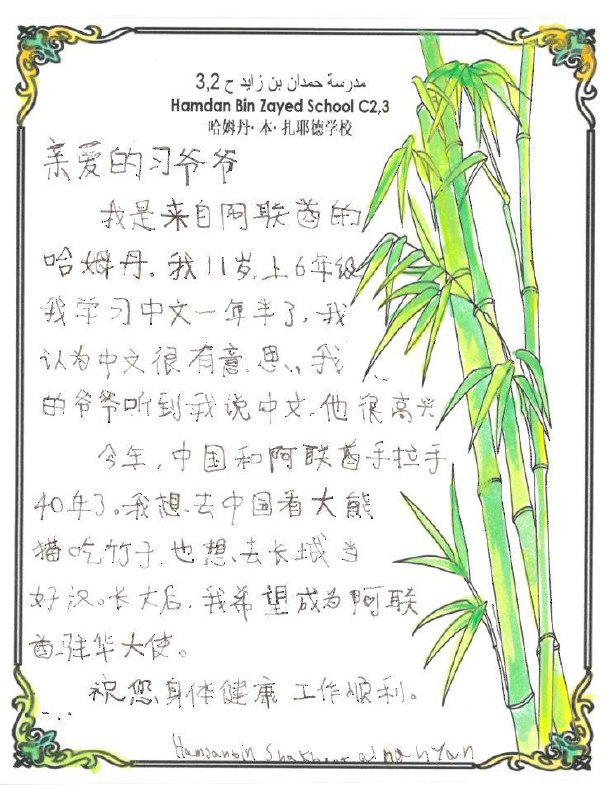 مدرسة حمدان بن زايد ح 3,2
Hamdan Bin Zayed School C2,3
哈姆丹·本·扎耶德学校
亲爱的习爷爷
我是来自阿联酋的
哈姆丹。我11岁,上6年级
我学习中文一年半了,我
认为中文很有意思。我
的爷爷听到我说中文,他很高兴
今年,中国和阿联酋手拉手
40年了。我想去中国看大熊
猫吃竹子,也想去长城当
好汉。长大后,我希望成为阿联
酋驻华大使。
祝您身体健康 工作顺利。